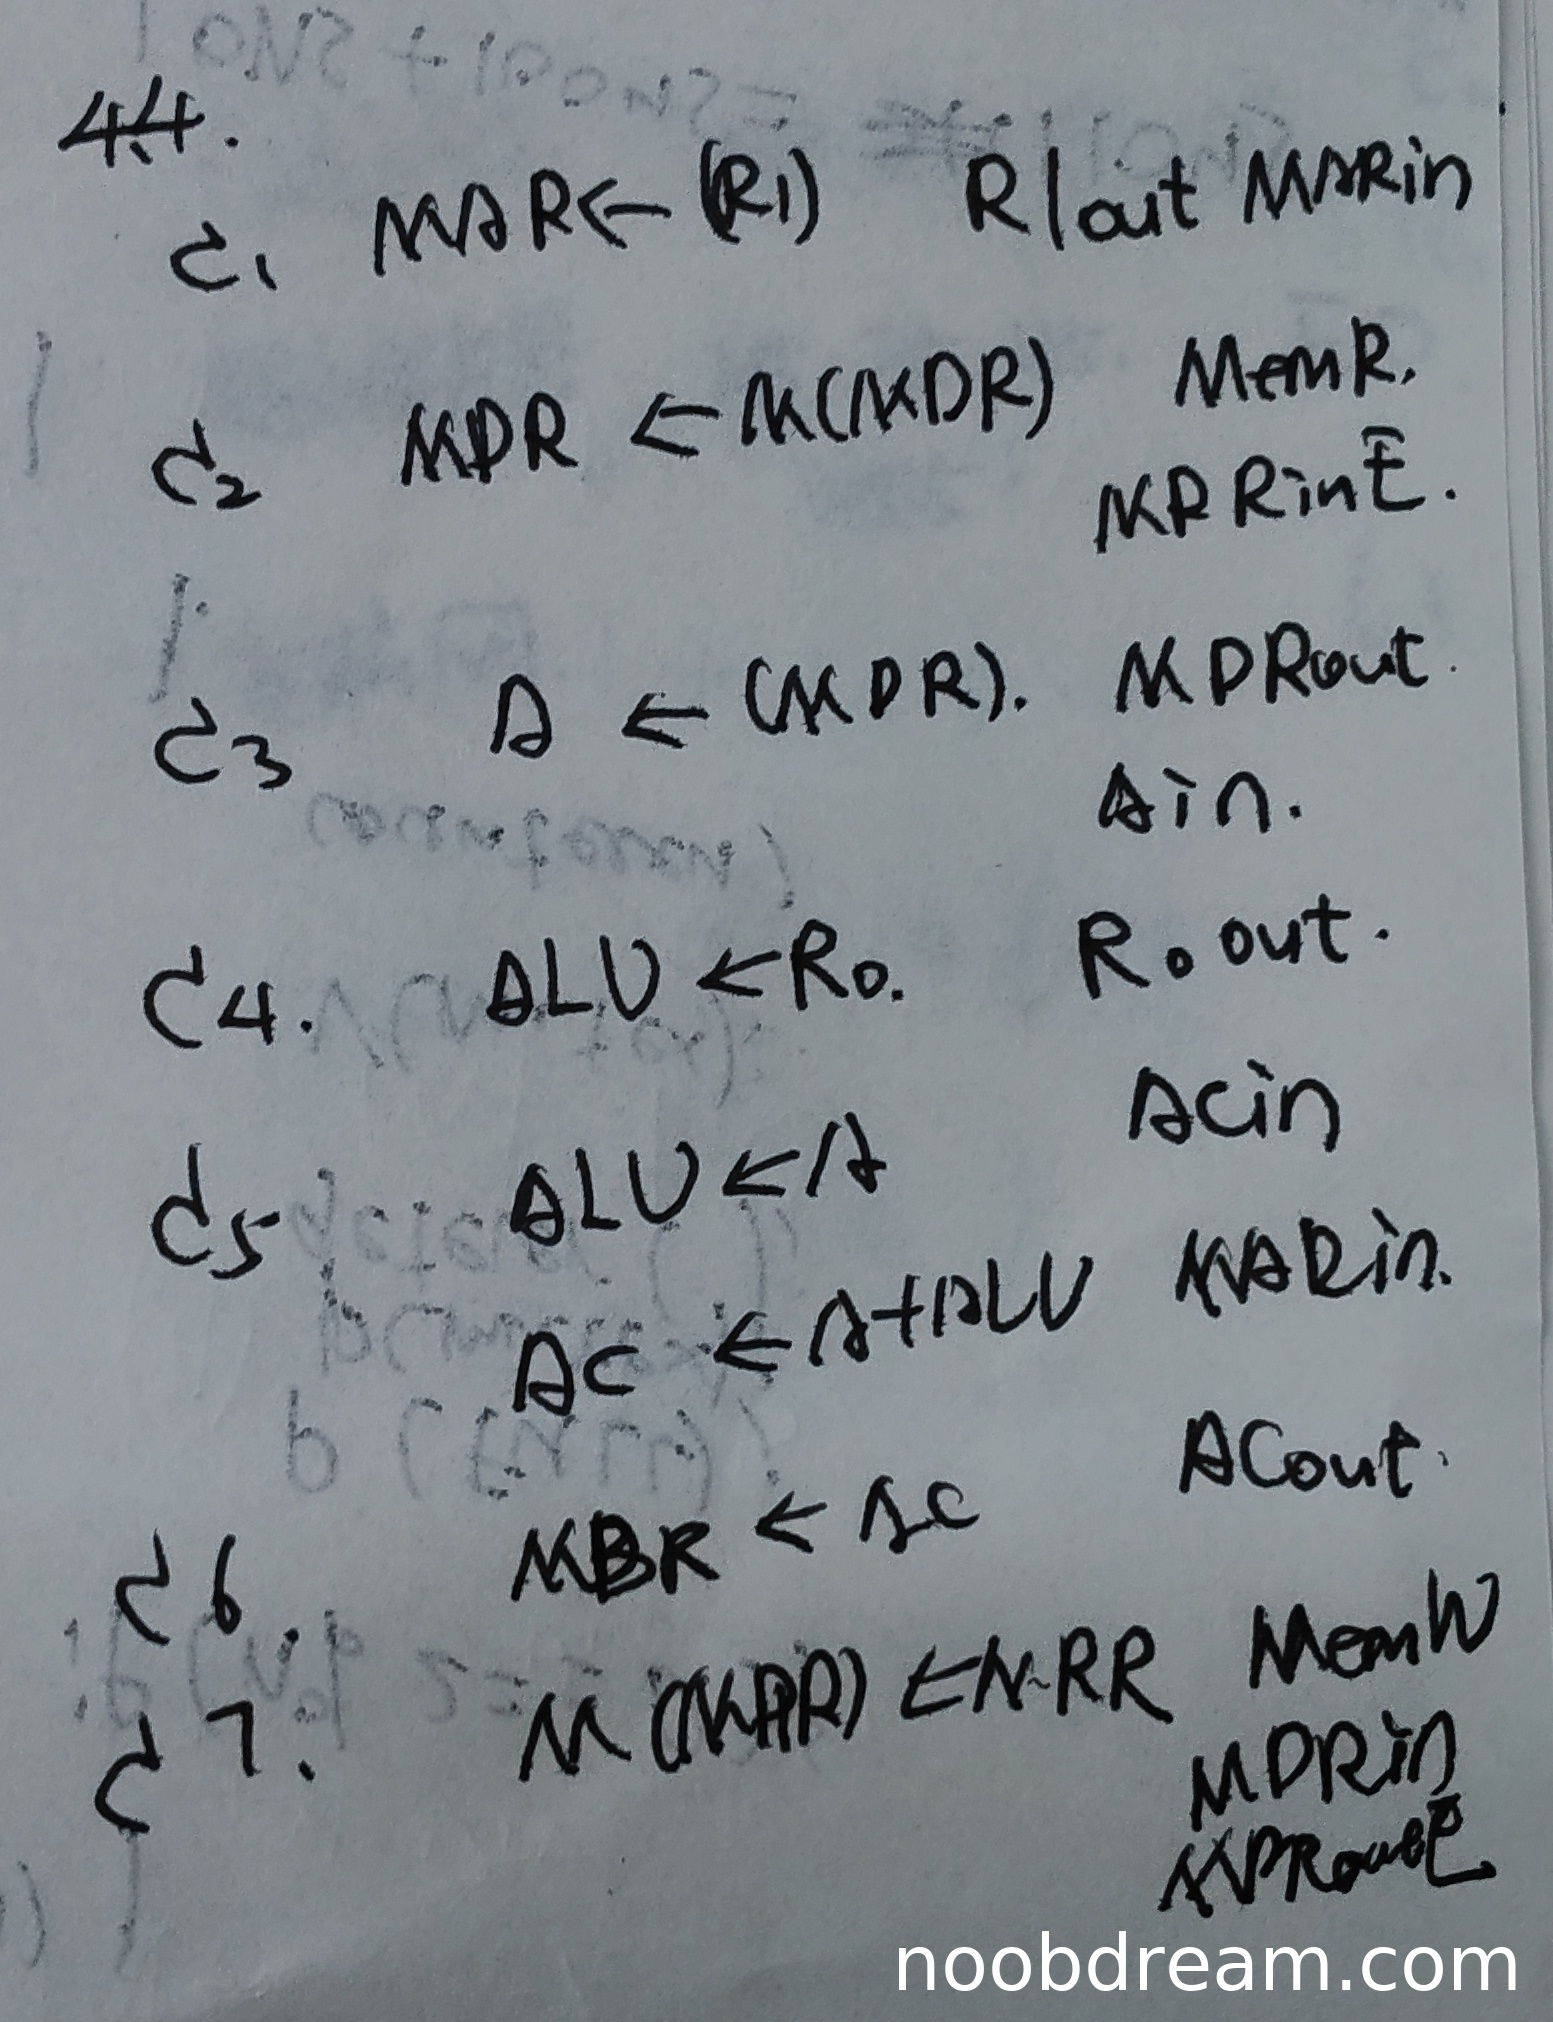 44.
C1 MAR ← (R1) R1out MARin
C2 MDR ← M(MDR) MemR,
MDRinE.
C3 A ← (MDR). MDRout.
Ain.
C4. ALU ← R0. R0out.
C5 ALU ← A ACin
AC ← A+ALU MARin.
C6. MBR ← AC ACout.
C7. M(MAR) ← MemW
MDRin
MDRoutE
noobdream.com